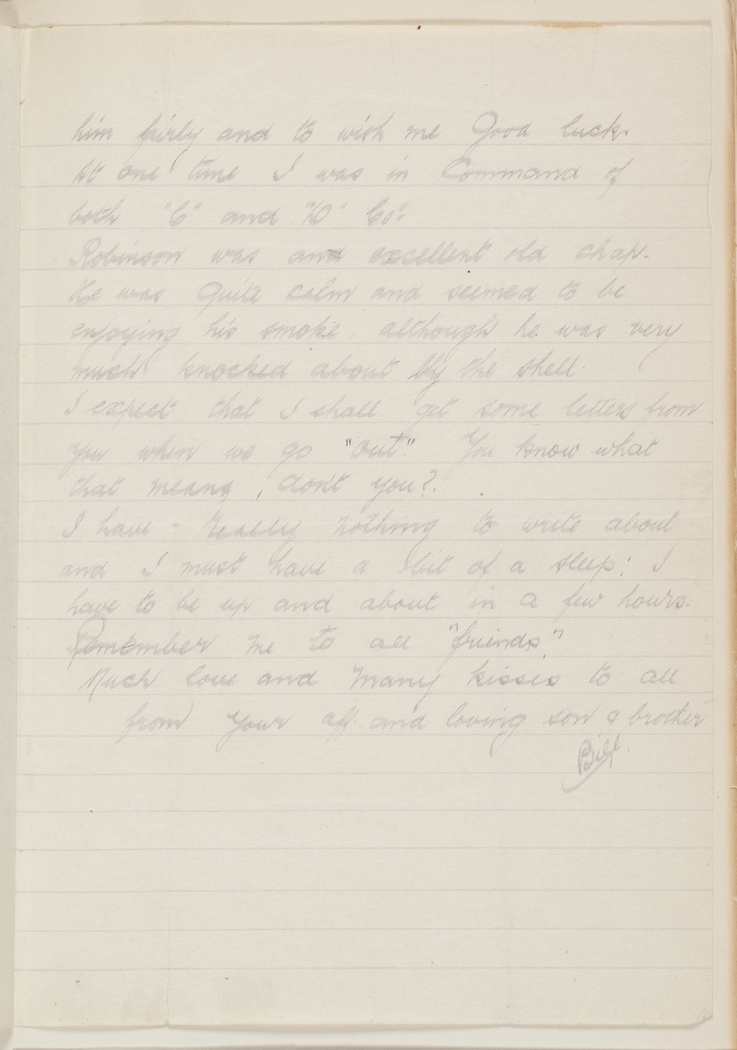 him fairly and to wish me Good luck.
At one time I was in Command of
both "C" and "D" Cos.
Robinson was and excellent old chap.
He was Quite calm and seemed to be
enjoying his smoke, although he was very
much knocked about by the shell.
I expect that I shall get some letters from
you when we go "out" You know what
that means, don't you?.
I have really nothing to write about
and I must have a bit of a sleep; I
have to be up and about in a few hours.
Remember me to all "friends."
Much love and Many kisses to all
from Your aff. and loving son & brother
Bill.